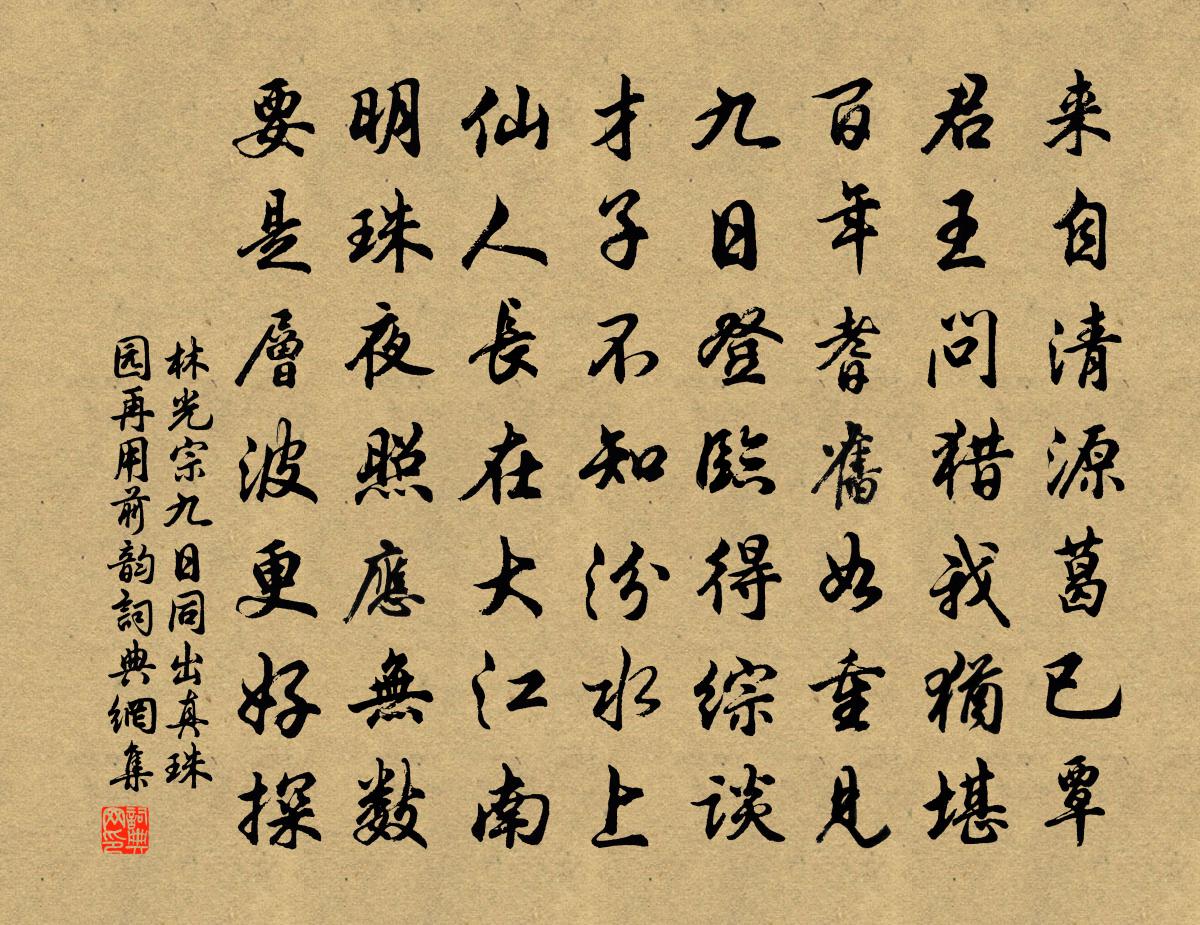 来自清源葛已覃
君王问猎我犹堪
百年耆舊如重見
九日登臨得综谈
才子不知汾水上
仙人長在大江南
明珠夜照應無数
要是層波更好探
林光宗九日同出真珠
园再用前韵詞典網集
詞典网印